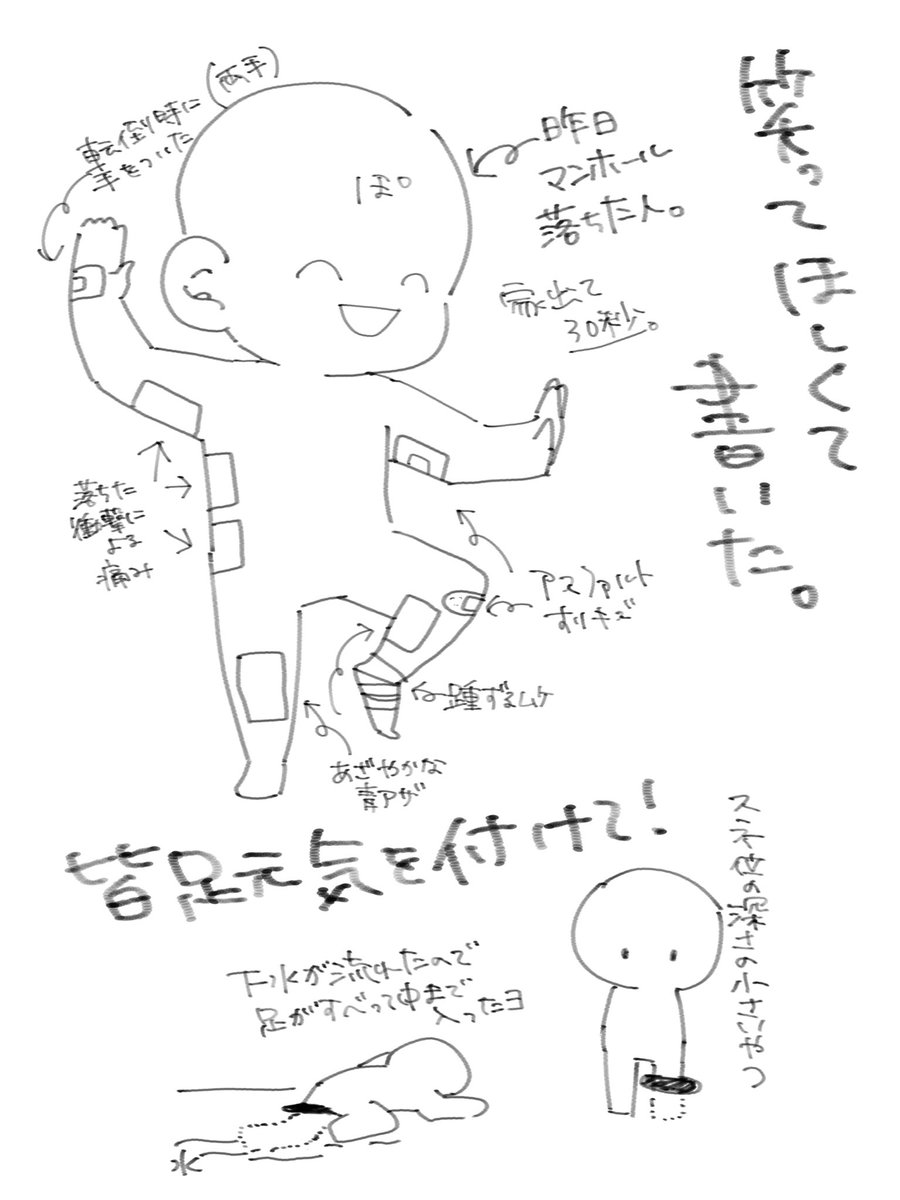 笑ってほしくて
書いた。
(両手)
転倒時に
手をついた
ぽ。
昨日
マンホール
落ちた人。
家出て
30秒。
落ちた
衝撃に
よる
痛み
アスファルト
すりキズ
踵ずるムケ
あざやかな
青アザ
皆足元気を付けて!
スネ位の深さの小さいやつ
下水が流れたので
足がすべって中まで
入ったヨ
水